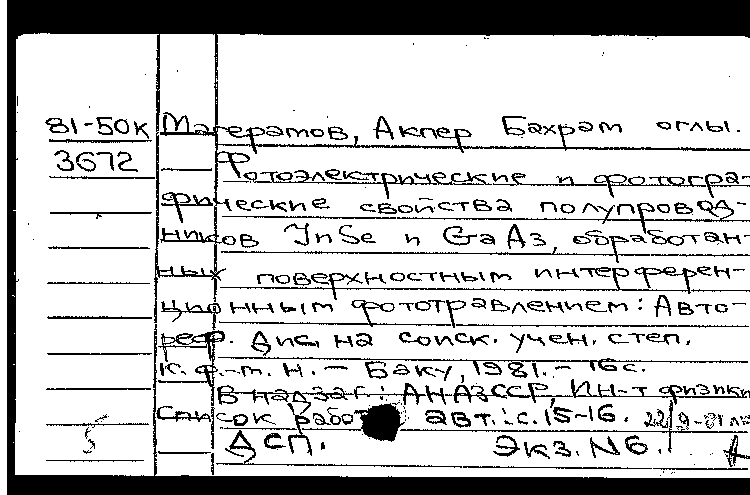 81-50к
3672
Магерамов, Акпер Бахрам оглы.
Фотоэлектрические и фотогра-
фические свойства полупровод-
ников InSe и GaAs, обработан-
ных поверхностным интерферен-
ционным фототравлением: Авто-
реф. дис. на соиск. учен. степ.
к. ф.-м. н. - Баку, 1981. - 16 с.
В надзаг.: АН АзССР, Ин-т физики
Список работ авт.: с. 15-16.
ДСП. Экз. N6.
5